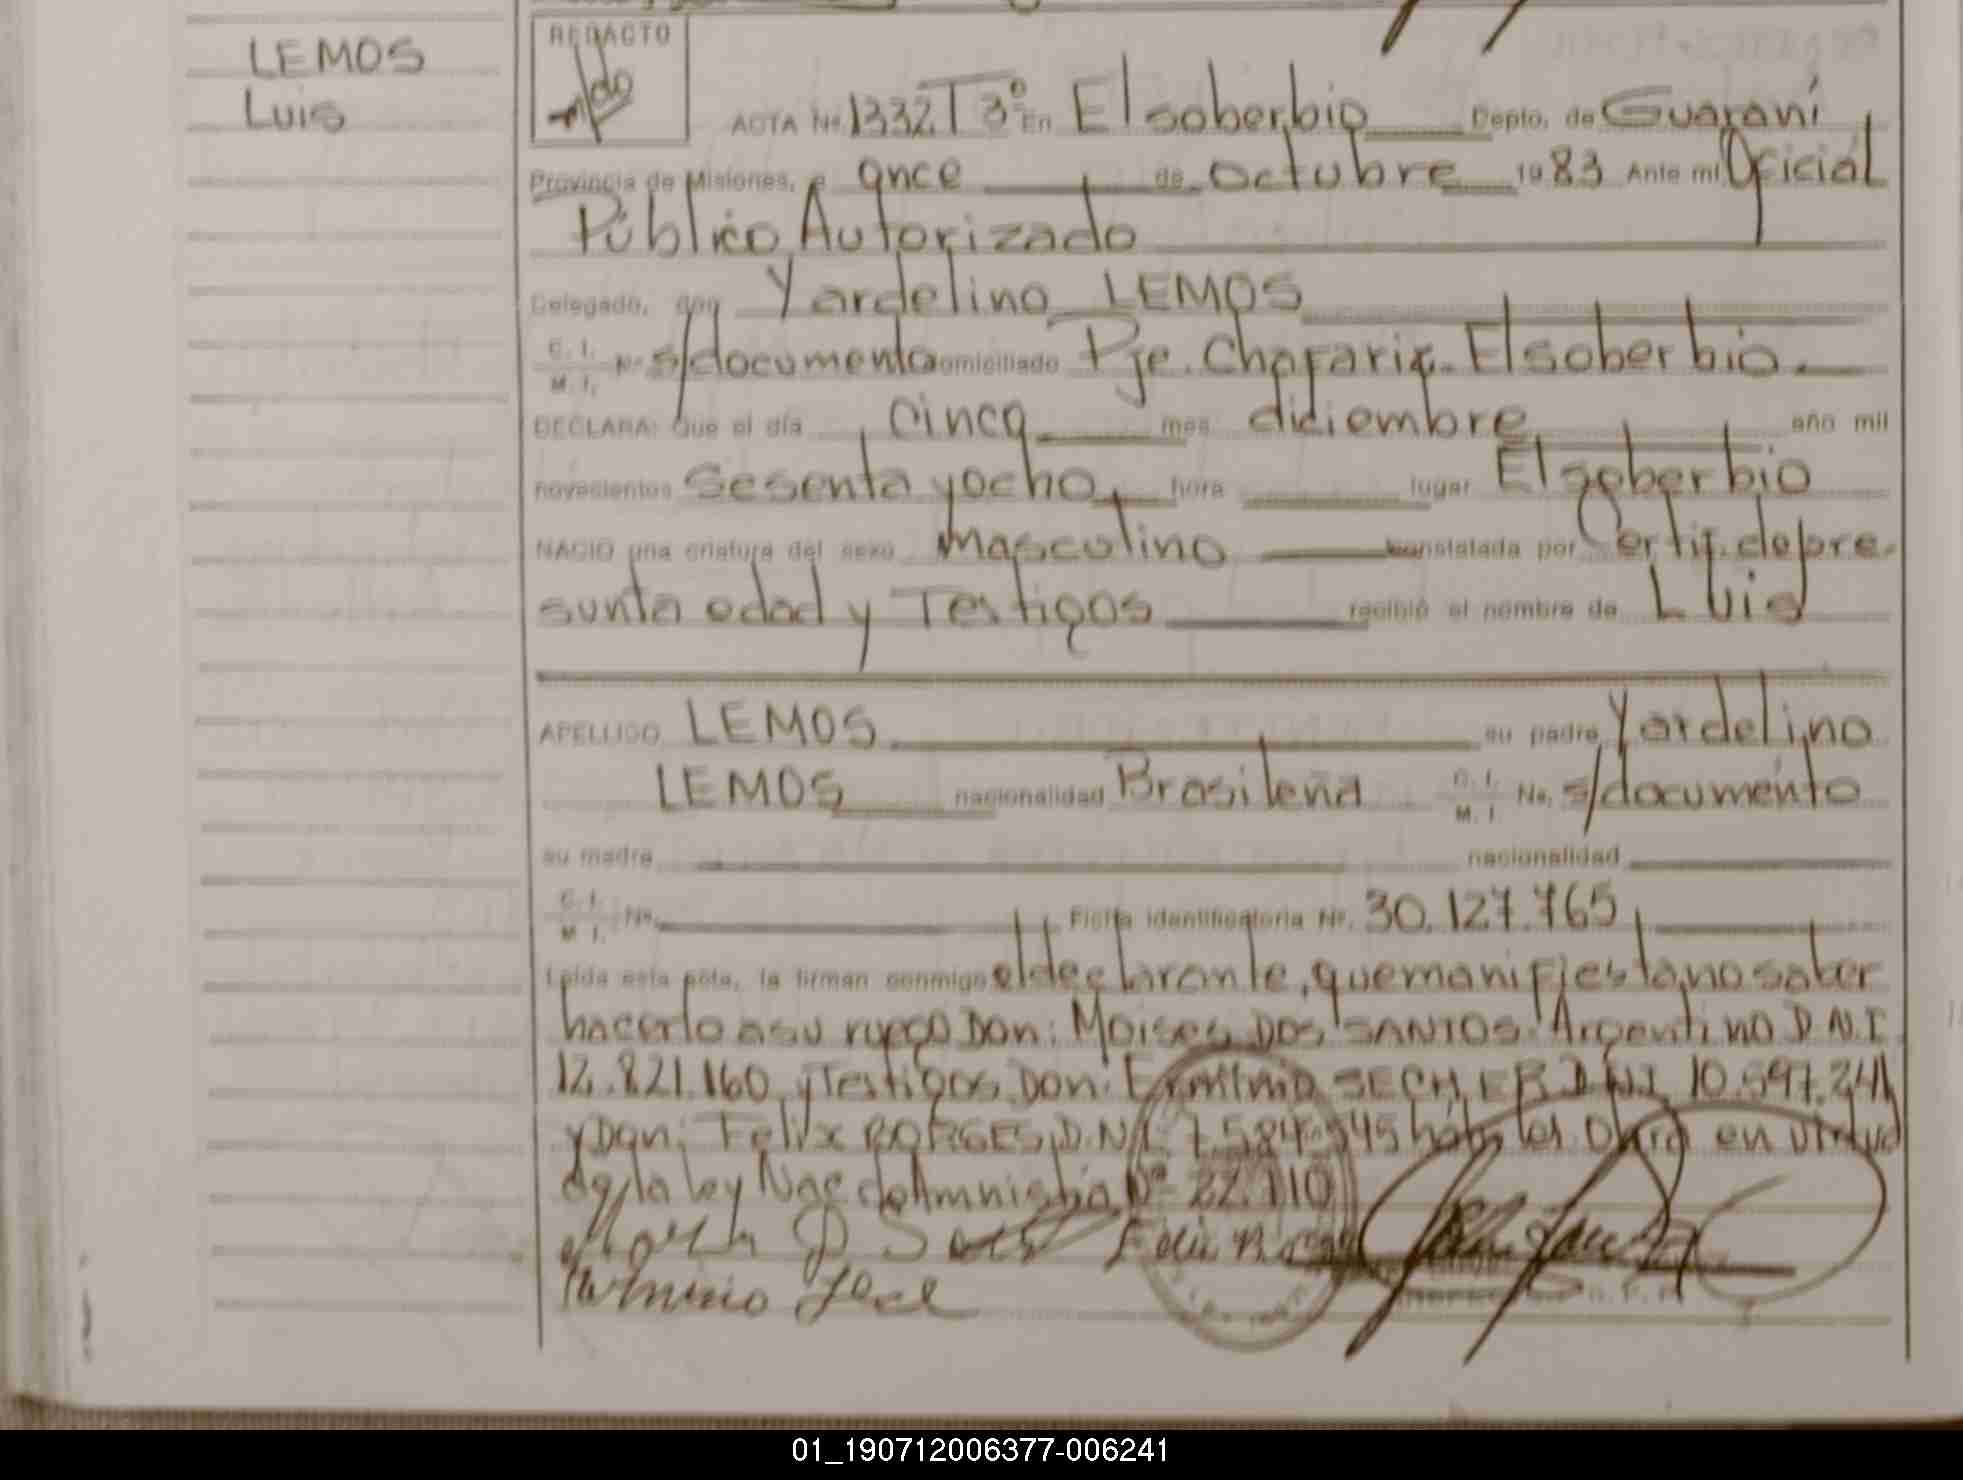 LEMOS
Luis
REDACTO
ACTA Nº 1332 T 3º En El soberbio Depto. de Guaraní
Provincia de Misiones, a once de octubre 1983 Ante mi Oficial
Público Autorizado
Delegado, don Yardelino LEMOS
C. I.
M. I. Nº s/documento domiciliado Pje. Chafariz. El soberbio.
DECLARA: Que el día cinco mes diciembre año mil
novecientos sesenta y ocho hora lugar El soberbio
NACIO una criatura del sexo masculino constatada por Certif. de pre-
sunta edad y Testigos recibió el nombre de Luis
APELLIDO LEMOS su padre Yardelino
LEMOS nacionalidad Brasileña C. I. M. I. No. s/documento
su madre nacionalidad
C. I.
M. I. No. Ficha identificatoria Nº. 30.127.765
Leída esta acta, la firman conmigo el declarante, que manifiesta no saber
hacerlo a su ruego Don: Moises DOS SANTOS. Argentino D.N.I.
12.821.160 y Testigos Don: SECHER D.N.I. 10.597.241
y Don: Felix BORGES D.N.I. 7.584.945 habiles Obra en virtud
de la ley Nac de Amnistia Nº 22.110